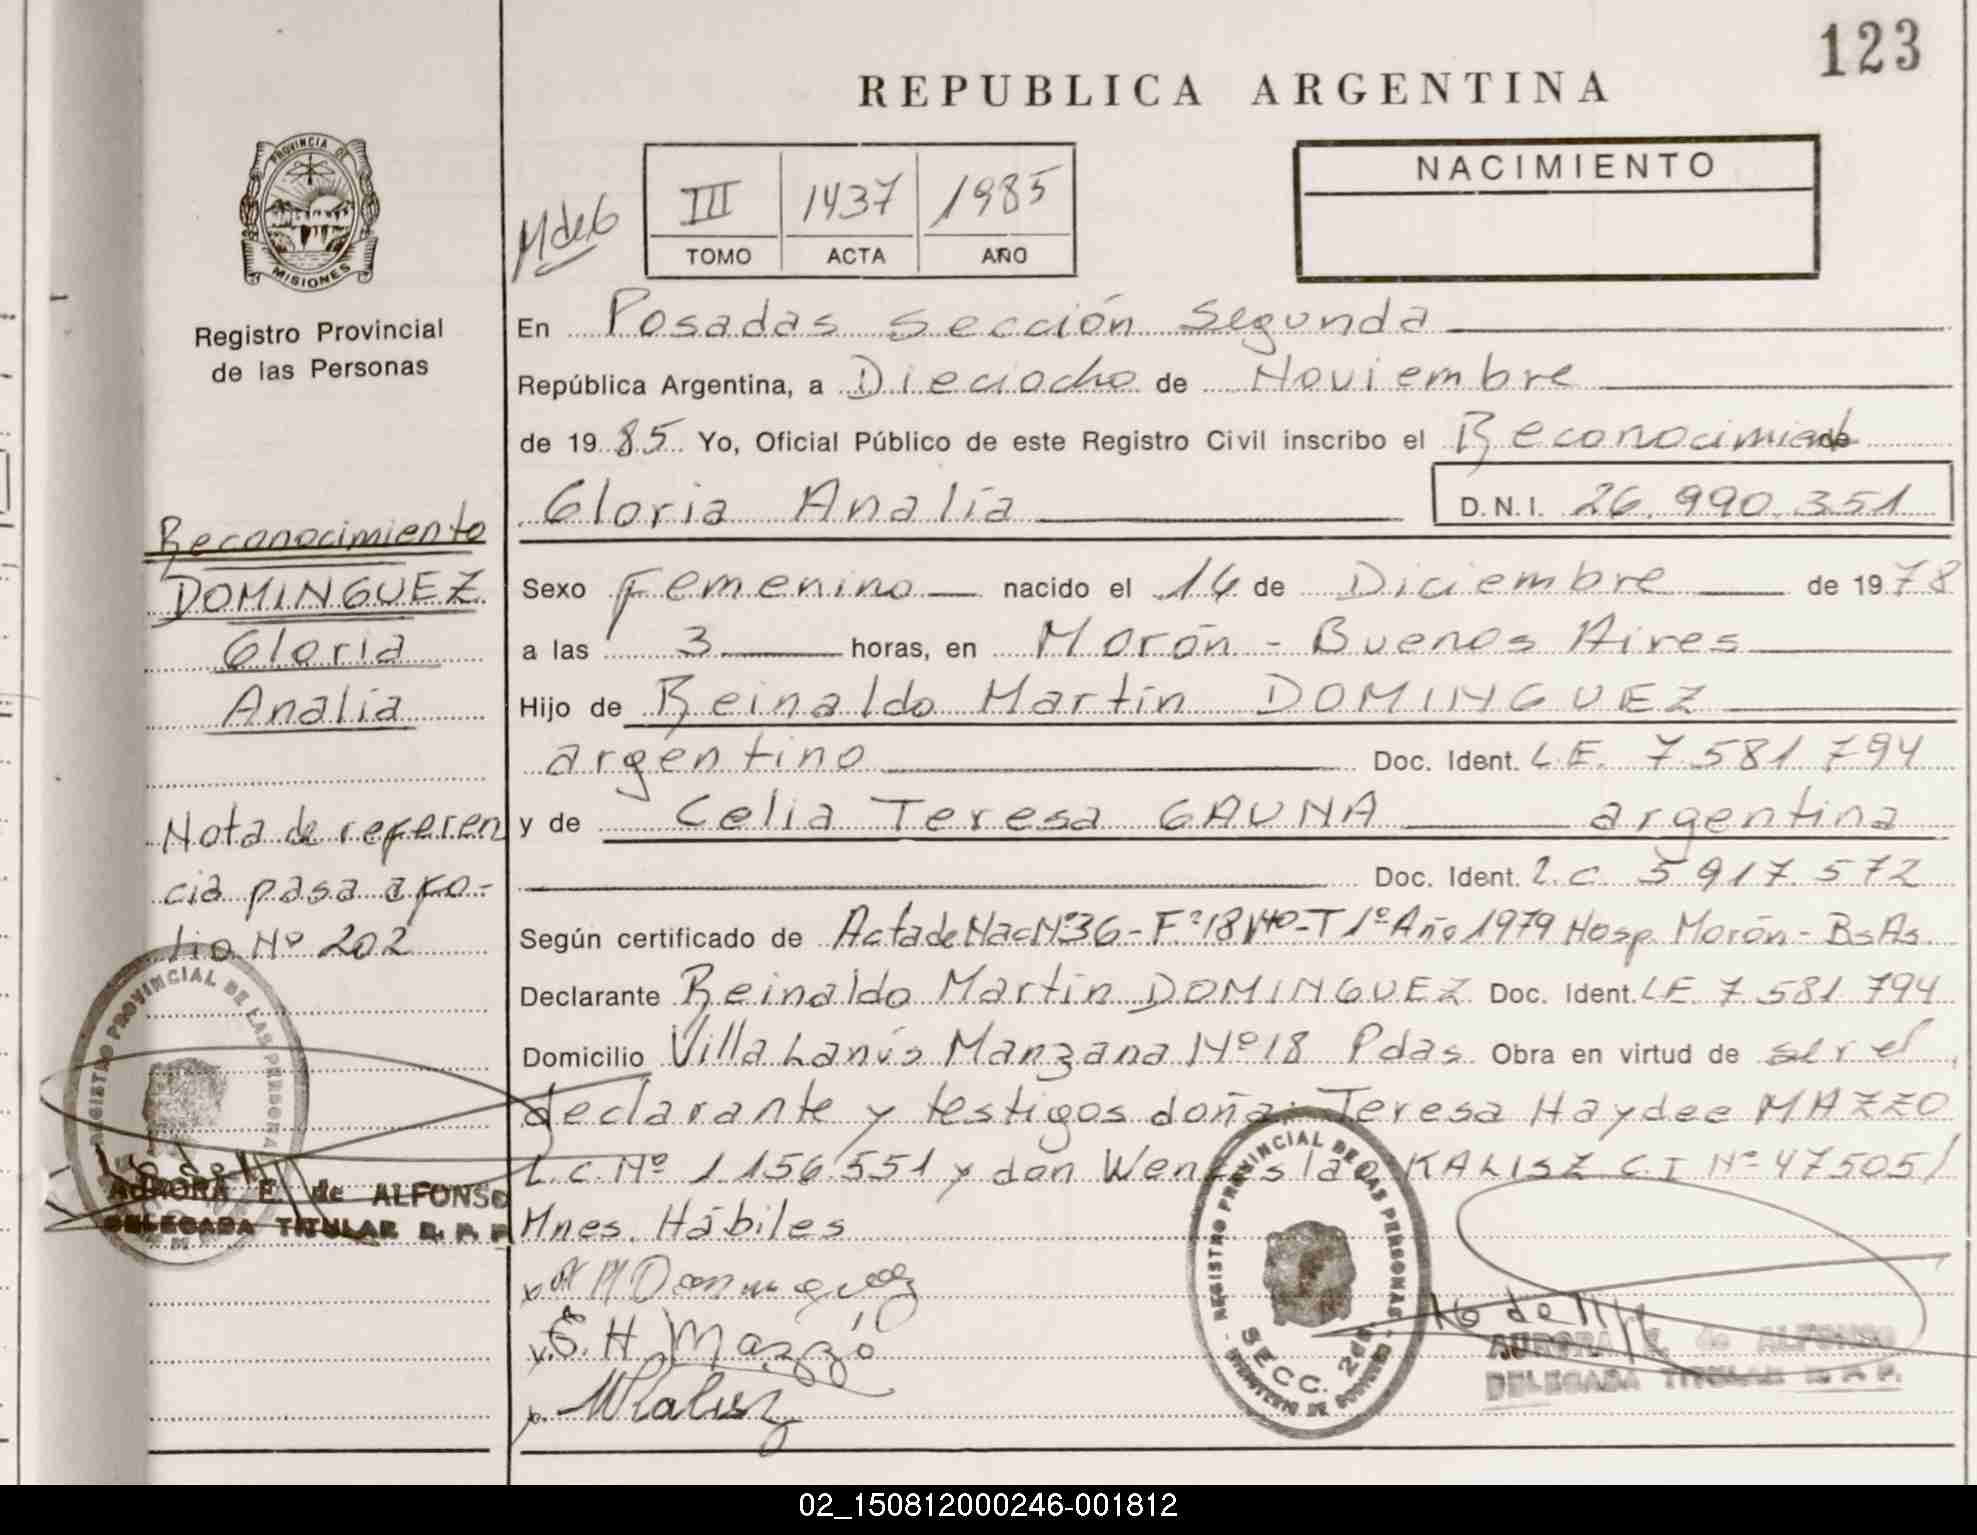 123
REPUBLICA ARGENTINA
PROVINCIA DE
MISIONES
Registro Provincial
de las Personas
M de G
III 1437 1985
TOMO ACTA AÑO
NACIMIENTO
En Posadas Sección Segunda
República Argentina, a Dieciocho de Noviembre
de 1985 Yo, Oficial Público de este Registro Civil inscribo el Reconocimiento de
Gloria Analía D.N.I. 26.990.351
Sexo Femenino nacido el 14 de Diciembre de 1978
a las 3 horas, en Morón - Buenos Aires
Hijo de Reinaldo Martín DOMINGUEZ
argentino Doc. Ident. L.E. 7.581.794
y de Celia Teresa GAUNA argentina
Doc. Ident. L.C. 5.917.572
Según certificado de Acta de Nac Nº36 - Fº 18 Vto - T 1º Año 1979 Hosp. Morón - Bs As.
Declarante Reinaldo Martín DOMINGUEZ Doc. Ident. L.E. 7.581.794
Domicilio Villa Lanús Manzana Nº 18 Pdas. Obra en virtud de ser el
declarante y testigos doña: Teresa Haydee MAZZO
L.C. Nº 1.156.551 y don Wenceslao KALISZ C.I Nº 47505/
Mnes. Hábiles
Reconocimiento
DOMINGUEZ
Gloria
Analía
Nota de referen
cia pasa a fo-
lio Nº 202
REGISTRO PROVINCIAL DE LAS PERSONAS
AURORA E. de ALFONSO
DELEGADA TITULAR R. P. P.
R M Dominguez
T. H. Mazzo
W Kalisz
REGISTRO PROVINCIAL DE LAS PERSONAS
SECC. 2da.
MINISTERIO DE GOBIERNO
AURORA E. de ALFONSO
DELEGADA TITULAR R. P. P.
02_150812000246-001812